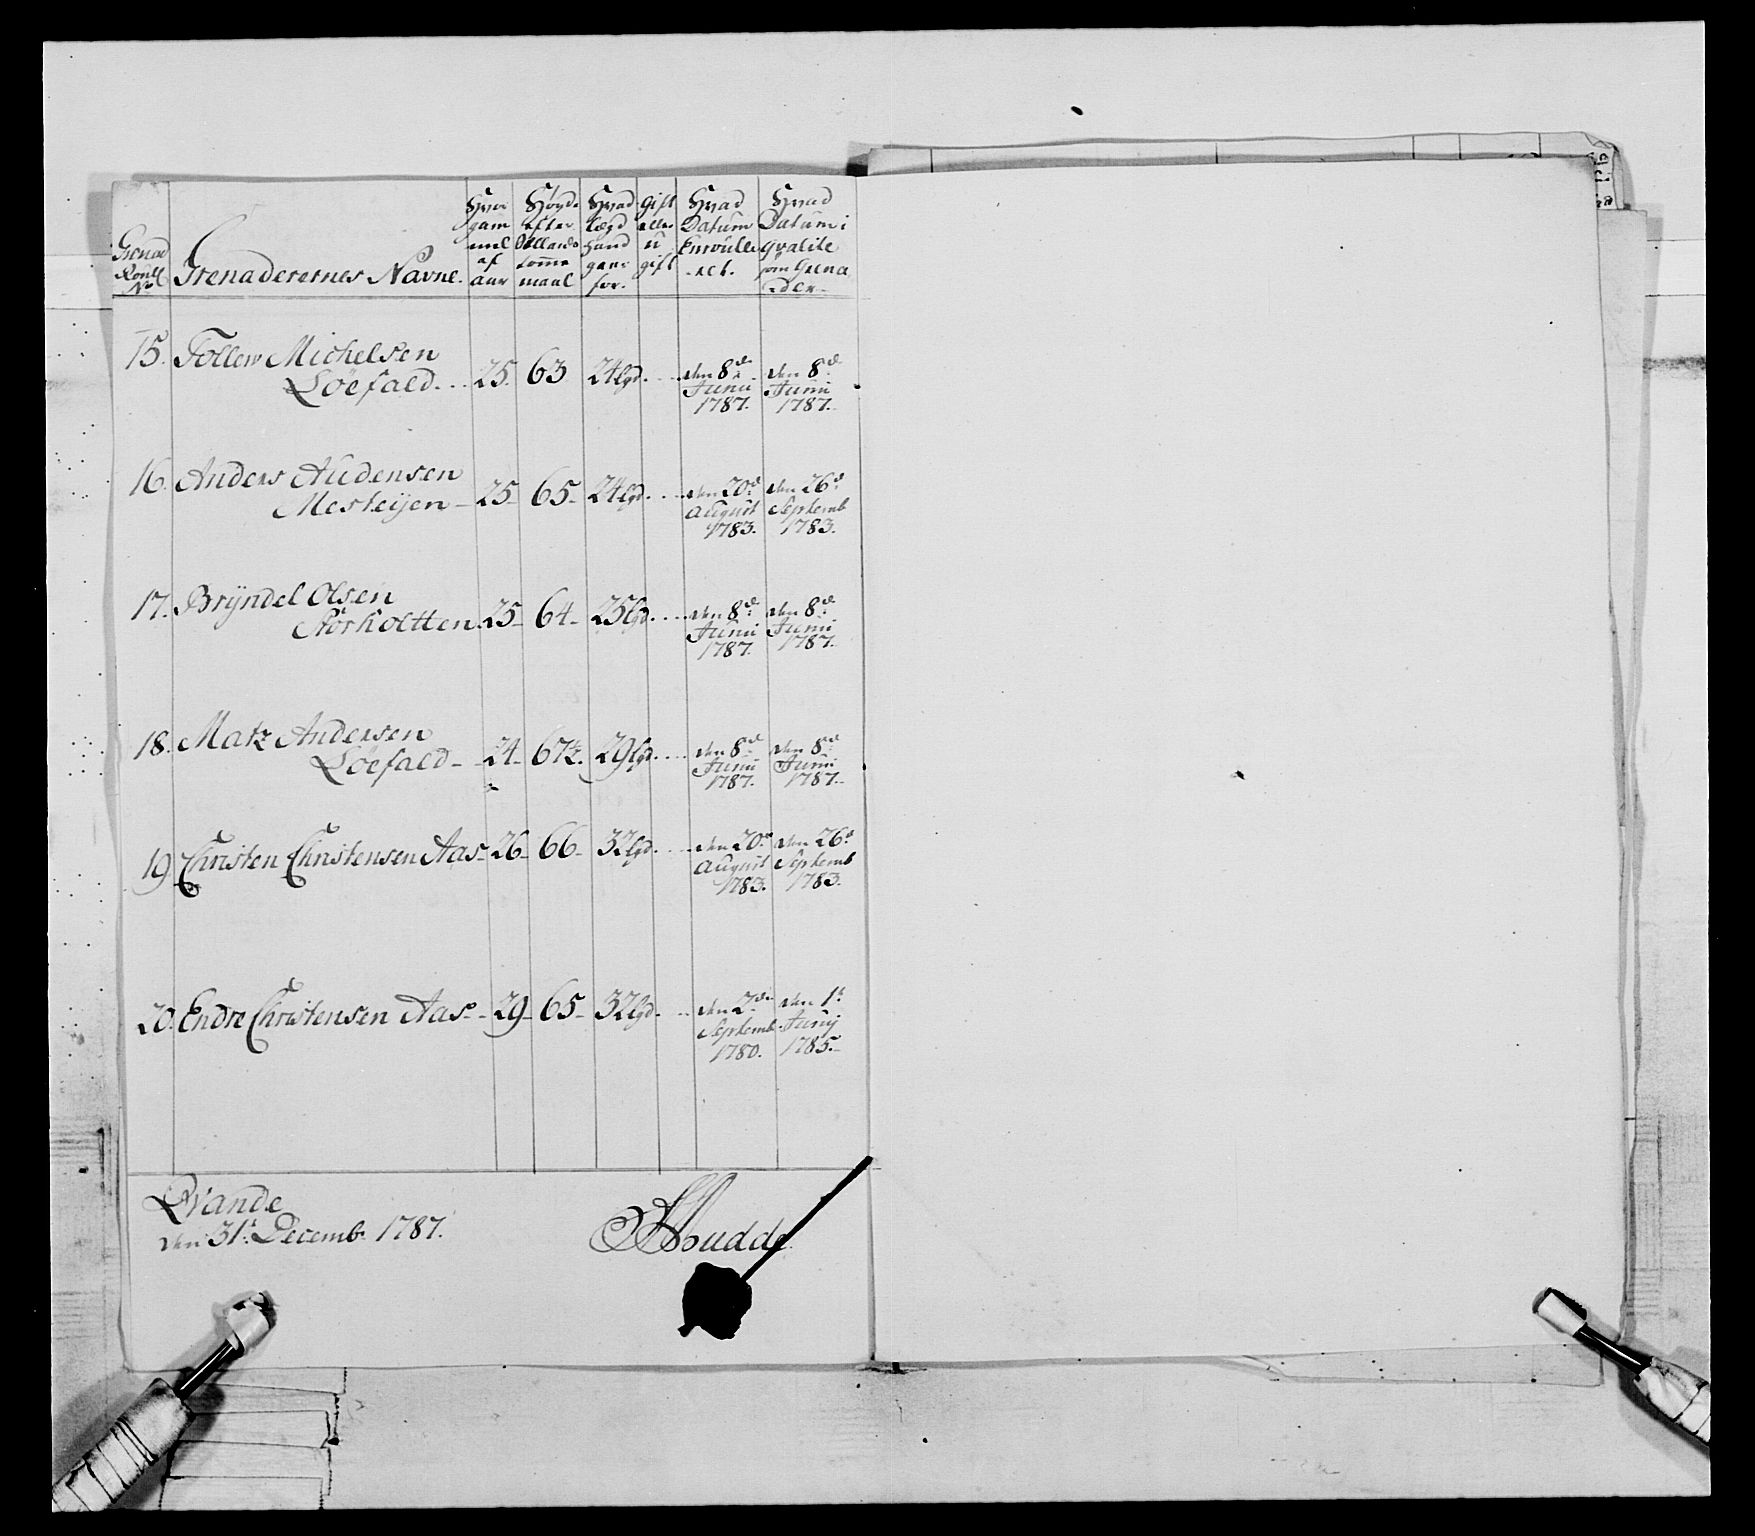 Grenad Roull No
Grenaderernes Navne.
Hvor gammel af aar
Høyde efter Sællands tomme maal
Hvad Lægd Hand gaar for.
Gift eller ugift
Hvad Datum Enroulleret.
Hvad Datum i qvalite som Grenader
15. Tollew Michelsen
Löefald. 25. 63 24 lgd. den 8de Junii 1787. den 8de Junii 1787.
16. Anders Audensen
Mesteÿen - 25- 65- 24 lgd. den 20d August 1783. den 26d Septemb 1783.
17. Brÿndel Olsen
Störholtten. 25- 64- 25 lgd. den 8de Junii 1787. den 8de Junii 1787.
18. Matz Andersen
Löefald - 24- 67½. 29 lgd. den 8d Junii 1787. den 8d Junii 1787.
19. Christen Christensen Aas- 26- 66- 32 lgd. den 20d August 1783. den 26d Septemb 1783.
20. Endre Christensen Aas- 29- 65- 32 lgd. den 2de Septemb. 1780. den 1t Junij 1785.
Qvande
den 31t Decemb. 1787.
Budde